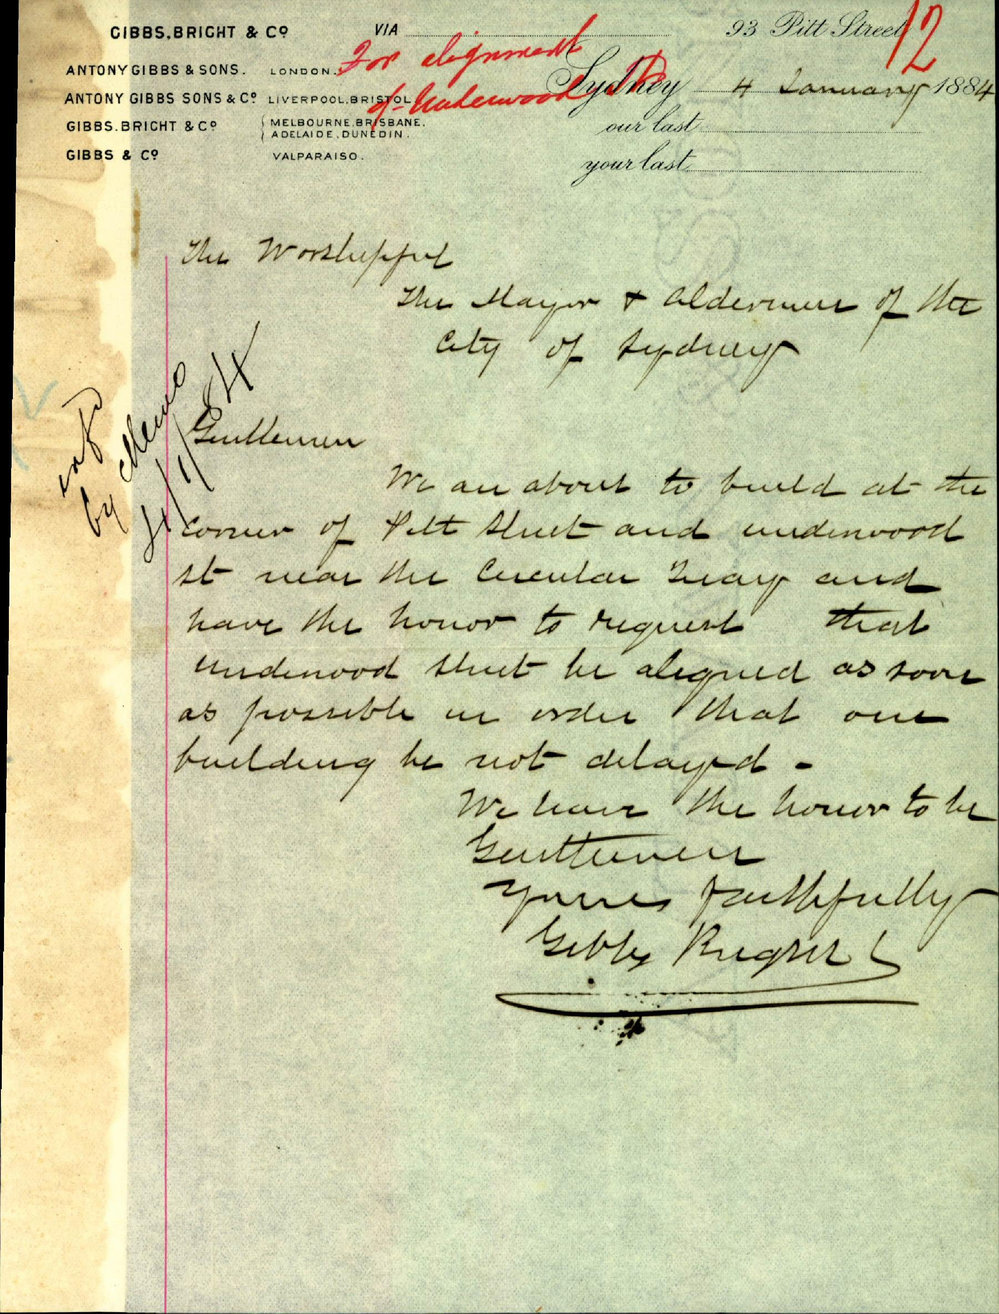 GIBBS, BRIGHT & Co
VIA
93 Pitt Street
12
ANTONY GIBBS & SONS. LONDON.
For alignment
of Underwood St
ANTONY GIBBS SONS & Co LIVERPOOL, BRISTOL.
Sydney 4 January 1884
GIBBS. BRIGHT & Co { MELBOURNE. BRISBANE.
ADELAIDE. DUNEDIN.
our last
GIBBS & Co VALPARAISO.
your last
The Worshipful
The Mayor & Aldermen of the
City of Sydney
by Memo
4/1/84
Gentlemen
We are about to build at the
corner of Pitt Street and underwood
st near the Circular Quay and
have the honor to request that
underwood street be aligned as soon
as possible in order that our
building be not delayed -
We have the honor to be
Gentlemen
Yours faithfully
Gibbs Bright &